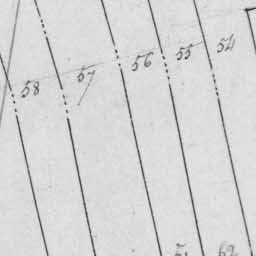 58 57 56 55 54
62